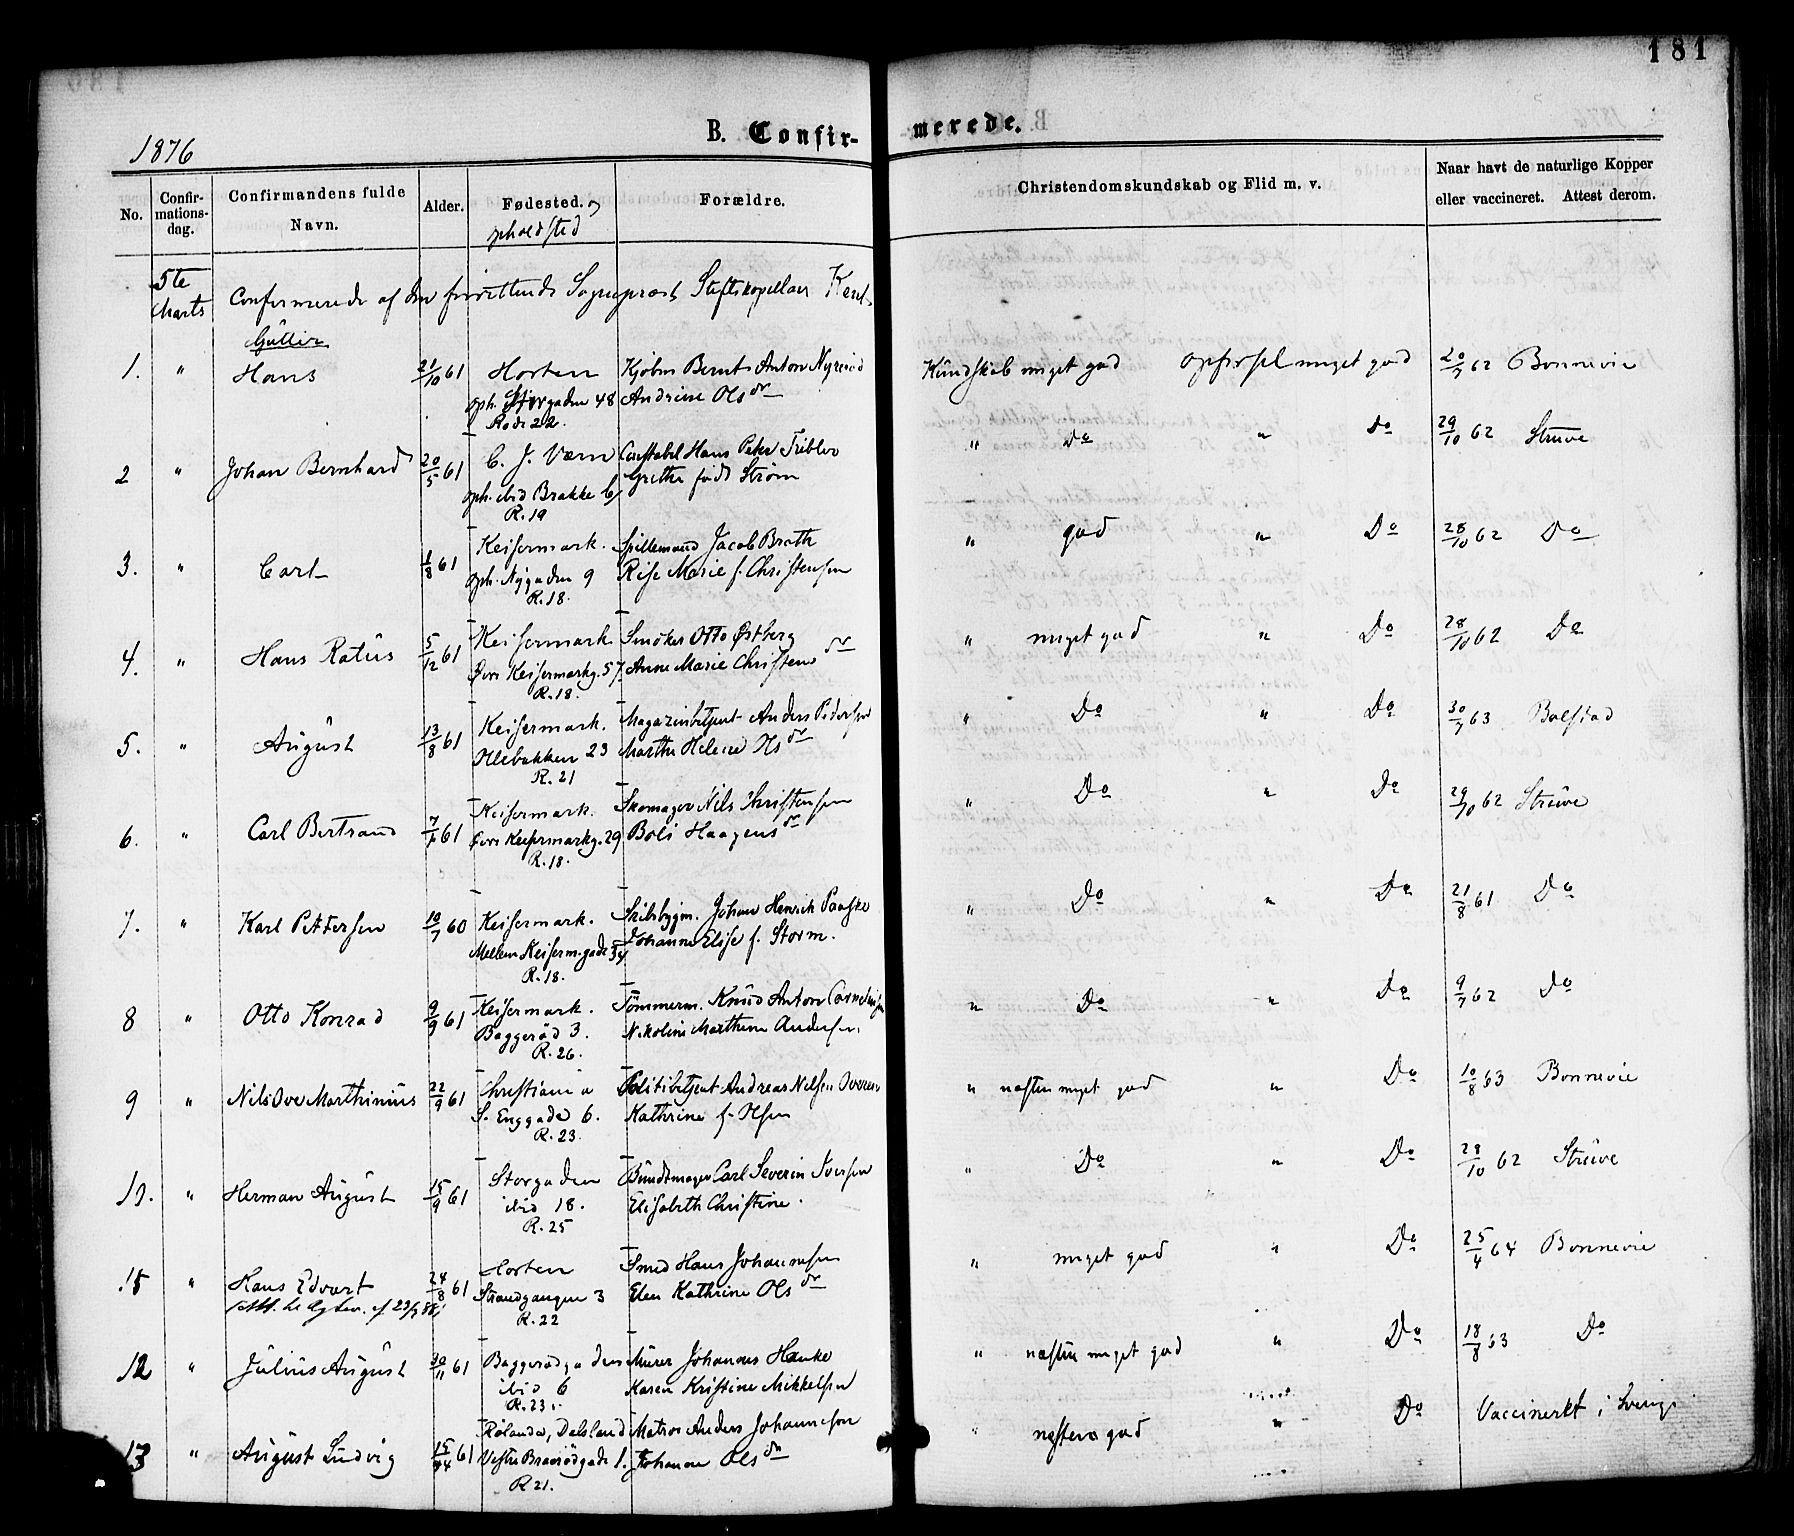 181
1876
B. Confir-
merede.
No.
Confir-
mations-
dag.
Confirmandens fulde
Navn.
Alder.
Fødested. og
opholdsted
Forældre.
Christendomskundskab og Flid m. v.
Naar havt de naturlige Kopper
eller vaccineret. Attest derom.
5te
Marts
Confirmerede af den Sognepræst Stiftskapellan
Gutter
1. " Hans 21/10 61 Horten Kjøbm Bernt Anton Nyrerød Kundskab meget god Opførsel meget god 20/7 62 Bonnevie
oph. Storgaden 48 Andrine Olsdr
Rode 22.
2 " Johan Bernhard 20/5 61 C. J. Værn Constabel Hans Peter Tribler " Do " Do 29/10 62 Struve
oph. ibid Brakke C Grethe født Strøm
R. 19
3. " Carl 1/8 61 Keisermark. Spillemand Jacob Brath " god " Do 28/10 62 Do
oph. Nygaden 9 Rise Marie f. Christensen
R. 18.
4. " Hans Ratus 5/12 61 Keisermark Smøker Otto Østberg " meget god " Do 28/10 62 Do
Øvre Keisermarkg. 57. Anne Marie Christensdr
R. 18.
5. " August 13/8 61 Keisermark. Magazinbetjent Anders Pedersen " Do " Do 30/7 63 Bolstad
Olebakken 23 Marthe Helene Olsdr
R. 21
6. " Carl Bertrand 61 Keisermark. Skomager Nils Christensen " Do " Do 29/10 62 Struve
Øvre Keisermarkg. 29 Boli Haagensdr
R. 18.
7. " Karl Pettersen 10/7 60 Keisermark. Skibsbygm. Johan Henrik Paaske " Do " Do 21/8 61 Do
Mellem Keiserm.gade 34 Johanne Elise f. Storm.
R. 18.
8 " Otto Konrad 9/9 61 Keisermark. Tømmerm. Knud Anton Corneliusen " Do " Do 9/7 62 Do
Baggerød 3. Nikoline Marthine Andersen
R. 26.
9 " Nils Ove Marthinius 22/9 61 Christiania Politibetjent Andreas Nilsen Overen " næsten meget god " Do 10/8 63 Bonnevie
S. Enggade 6. Kathrine f. Olsen
R. 23.
10. " Herman August 15/9 61 Storgaden Bundtmager Carl Severin Iversen " Do " Do 29/10 62 Struve
ibid 18. Elisabeth Christine.
R. 25
" Hans Edvart 24/8 61 Horten Smed Hans Johannesen " meget god " Do 25/4 64 Bonnevie
Strandgangen 3 Elen Kathrine Olsdr
R. 22
12 " Julius August 30/11 61 Baggerødgaden Murer Johannes Hanke " næsten meget god " Do 18/8 63 Do
ibid 6 Karen Kristine Mikkelsen
R. 23.
13 " August Ludvig 61 Rølanda, Dalsland Matros Anders Johanneson " næsten god " Do Vaccineret i Sverige
Vestre Braarødgade 1. Johanne Olsdr
R 21.